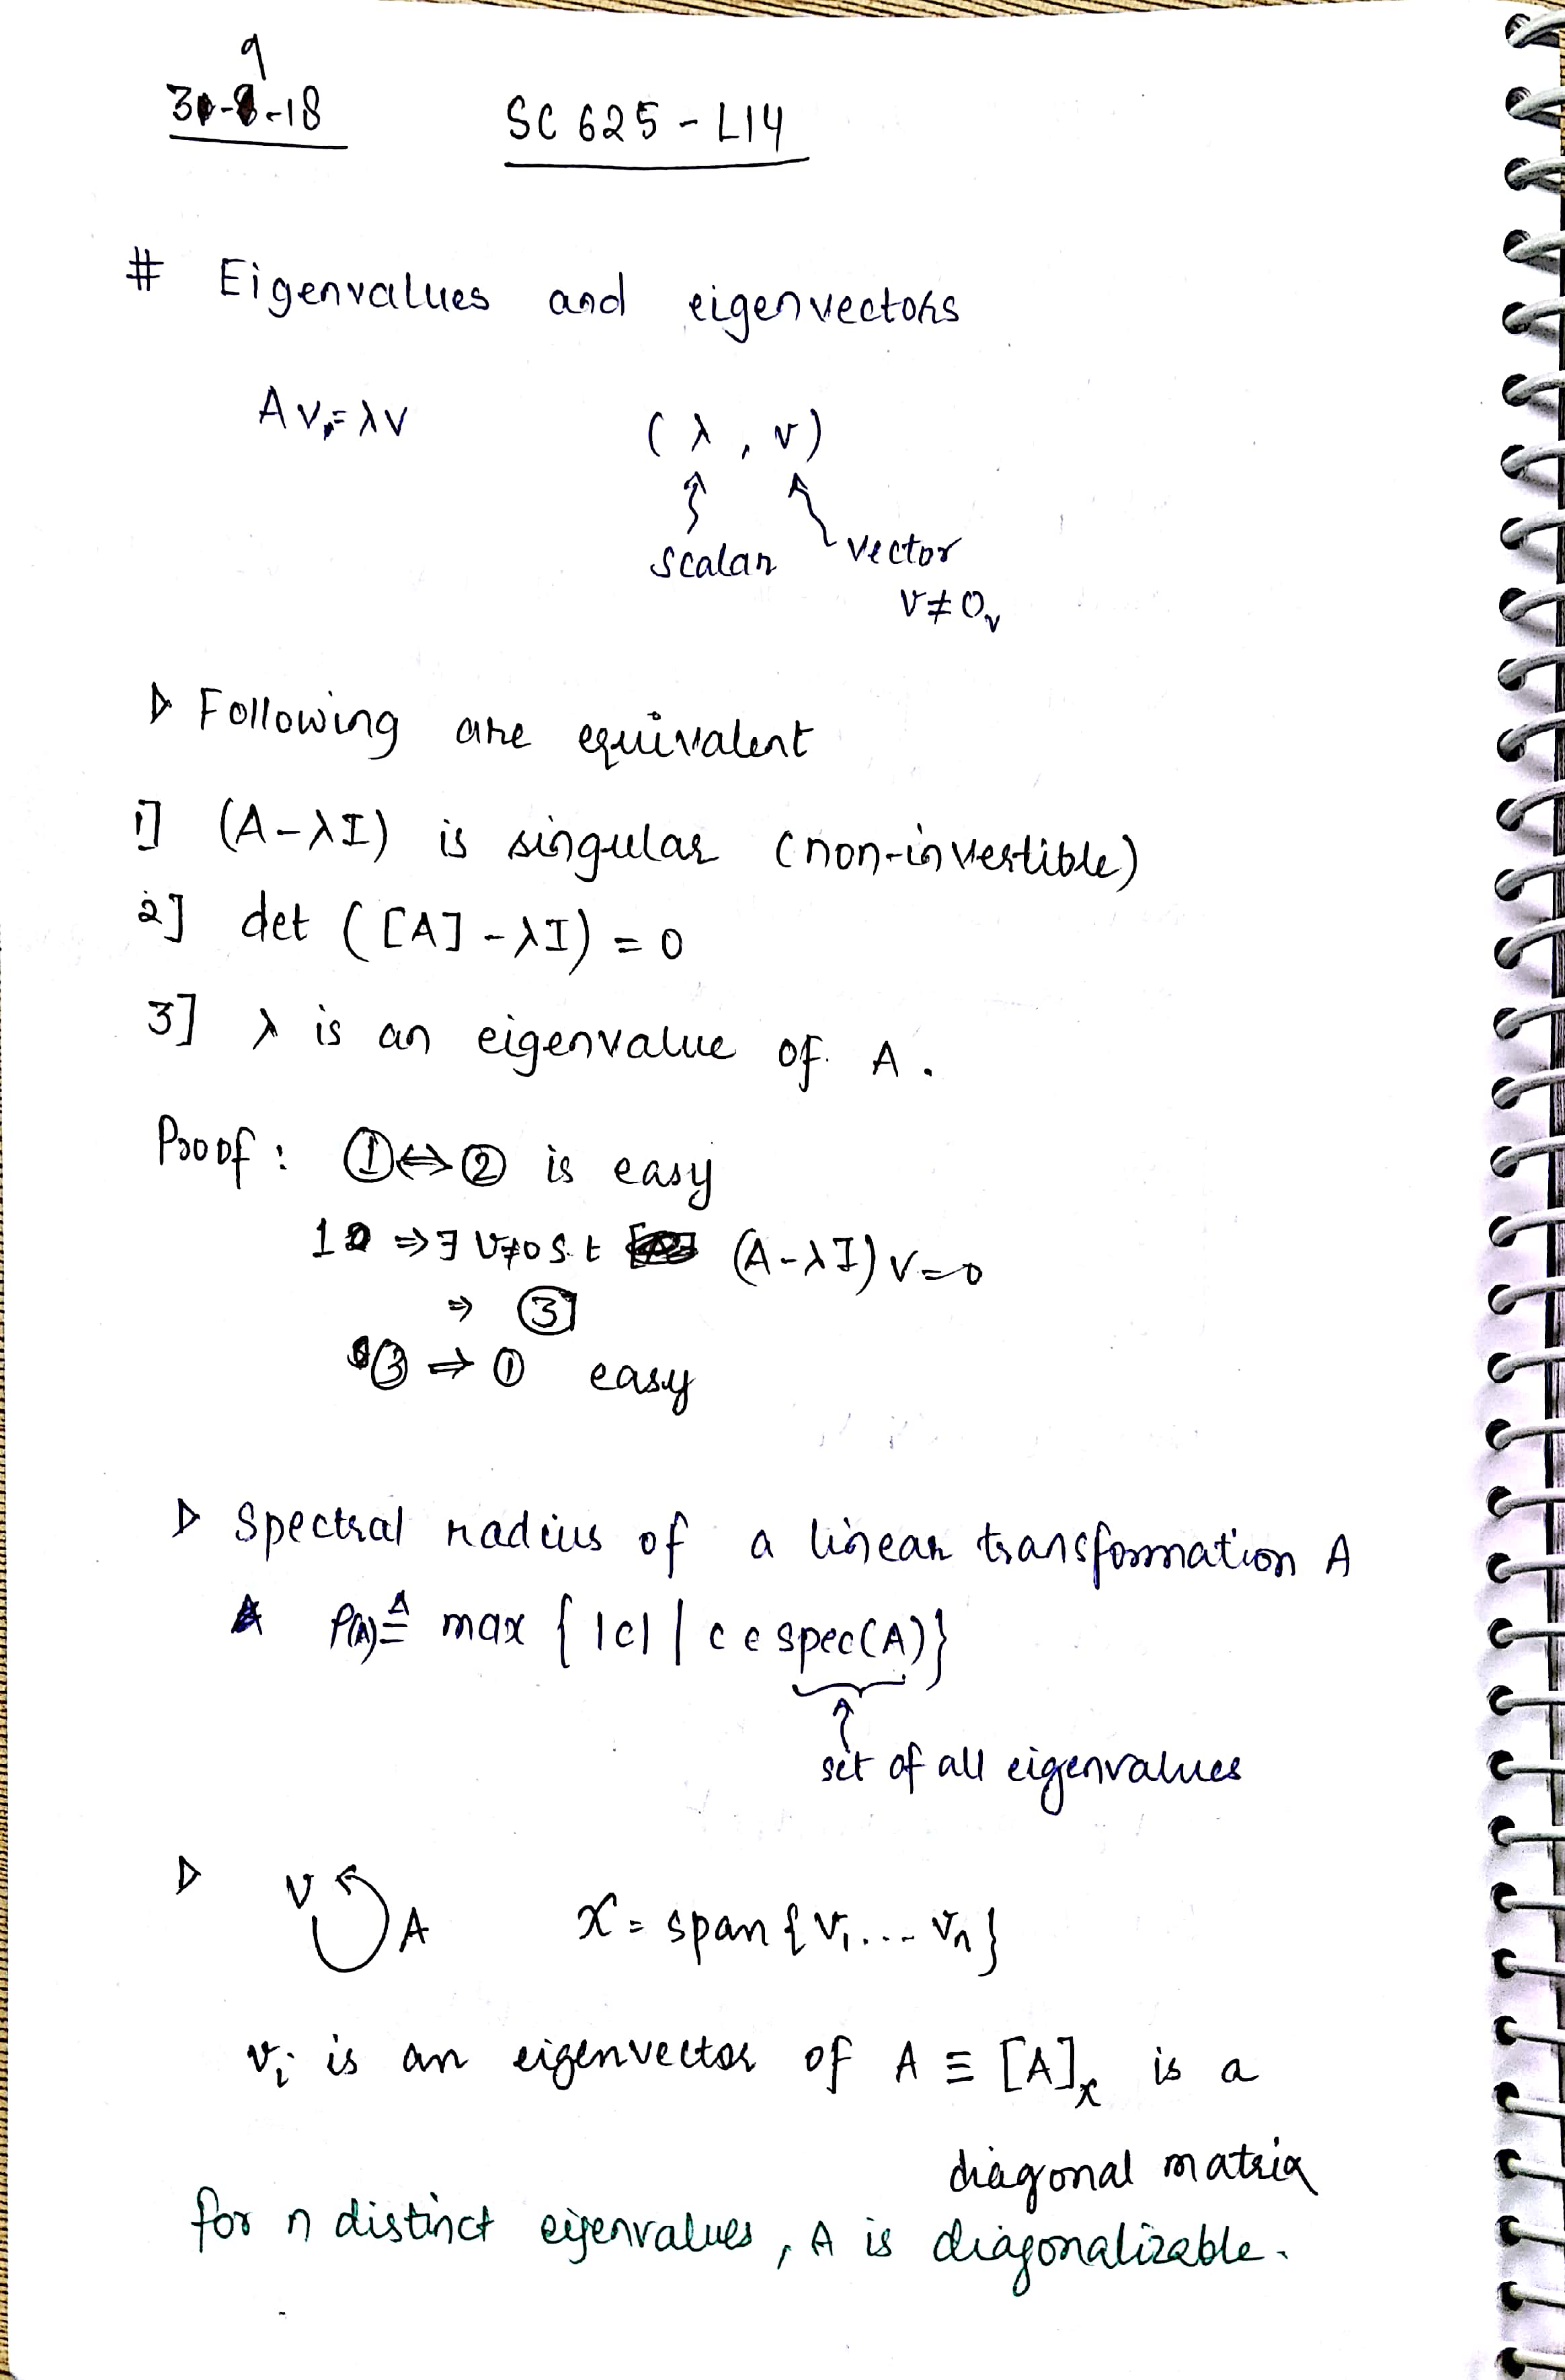 9
30-8-18 SC 625 - L14
# Eigenvalues and eigenvectors
Av = λv (λ, v)
scalar vector
v≠0ᵥ
▷ Following are equivalent
1] (A-λI) is singular (non-invertible)
2] det ([A]-λI) = 0
3] λ is an eigenvalue of A.
Proof: ①⇔② is easy
1 ⇒ ∃ v≠0 s.t (A-λI)v=0
⇒ ③
③ ⇒ ① easy
▷ Spectral radius of a linear transformation A
ρ(A) ≜ max { |c| | c ∈ spec(A)}
↑
set of all eigenvalues
▷ V ↺ A x = span{v₁... vₙ}
vᵢ is an eigenvector of A ≡ [A]ₓ is a
diagonal matrix
for n distinct eigenvalues, A is diagonalizable.